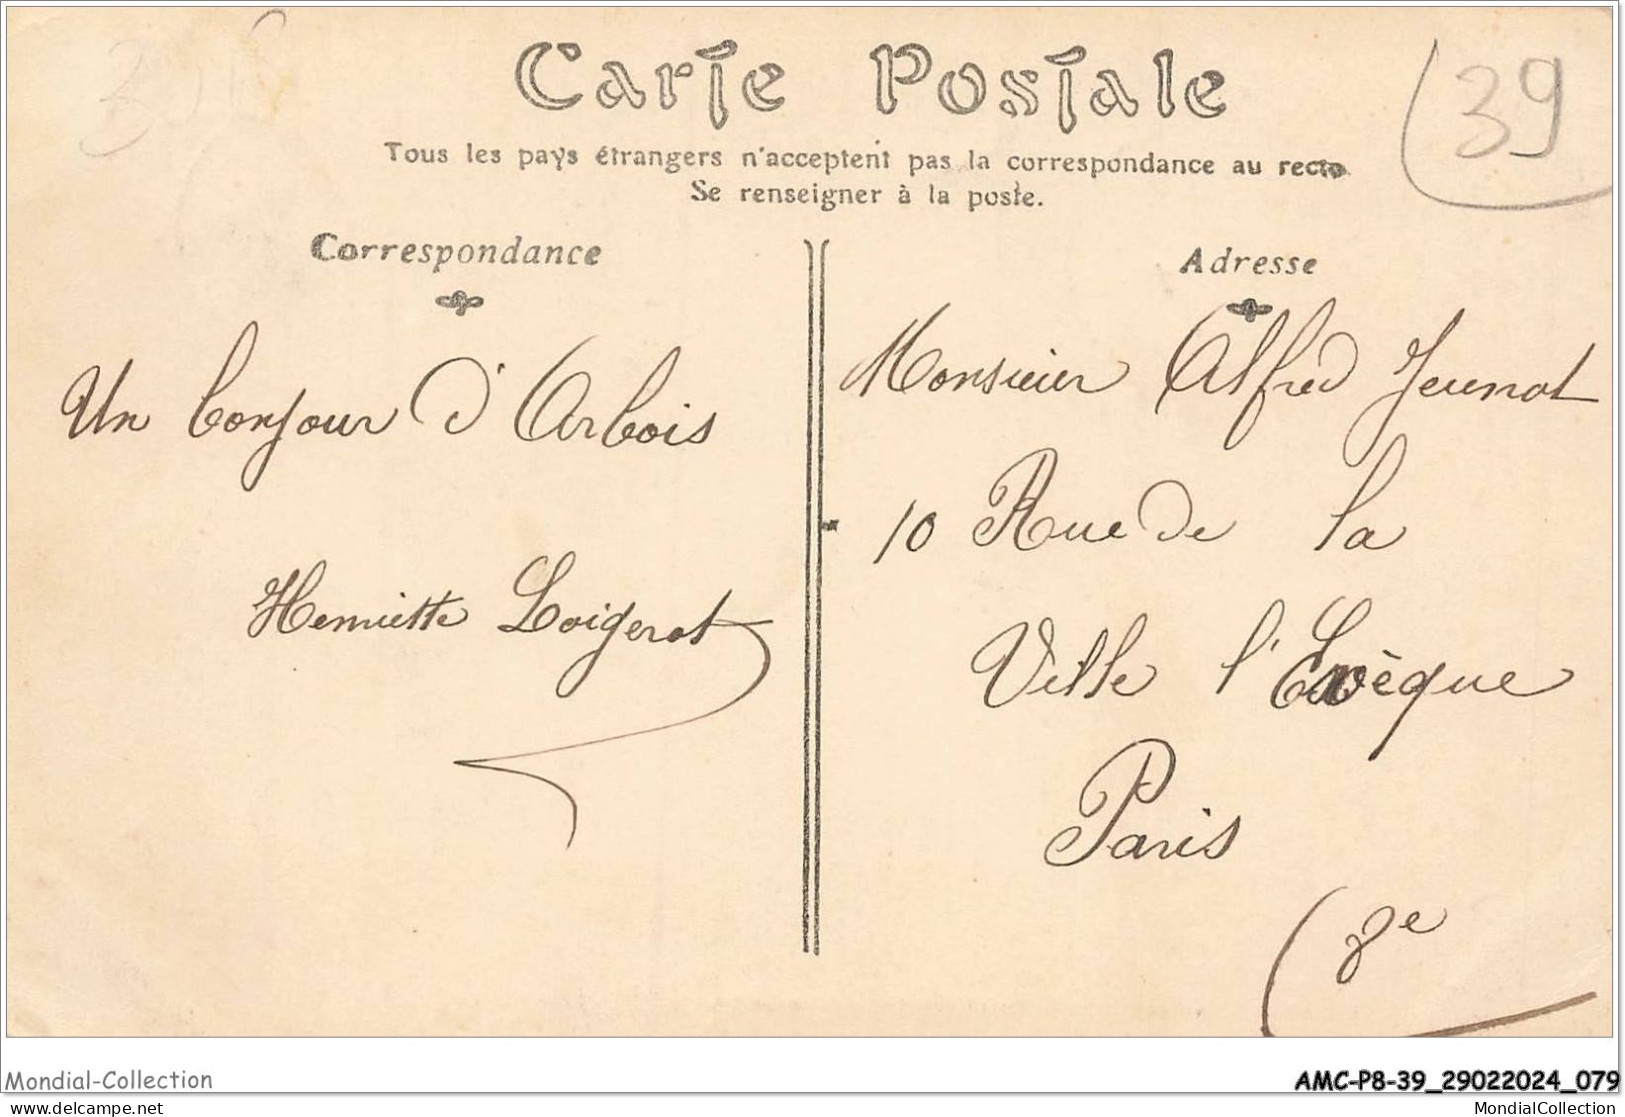 Carte Postale
39
Tous les pays étrangers n'acceptent pas la correspondance au recto
Se renseigner à la poste.
Correspondance
Un bonjour d'Arbois
Henriette Loigerot
Adresse
Monsieur Alfred Jeunot
10 Rue de la
Ville l'Evèque
Paris
8e
Mondial-Collection
delcampe.net
AMC-P8-39_29022024_079
MondialCollection